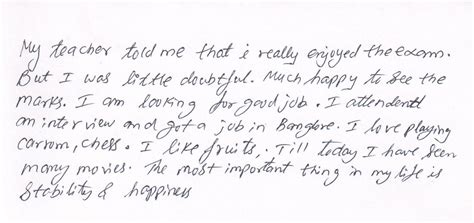 My teacher told me that i really enjoyed the exam.
But I was little doubtful. Much happy to see the
marks. I am looking for good job. I attendent
an interview and got a job in Banglore. I love playing
carrom, chess. I like fruits,. Till today I have seen
many movies. The most important thing in my life is
stability & happiness